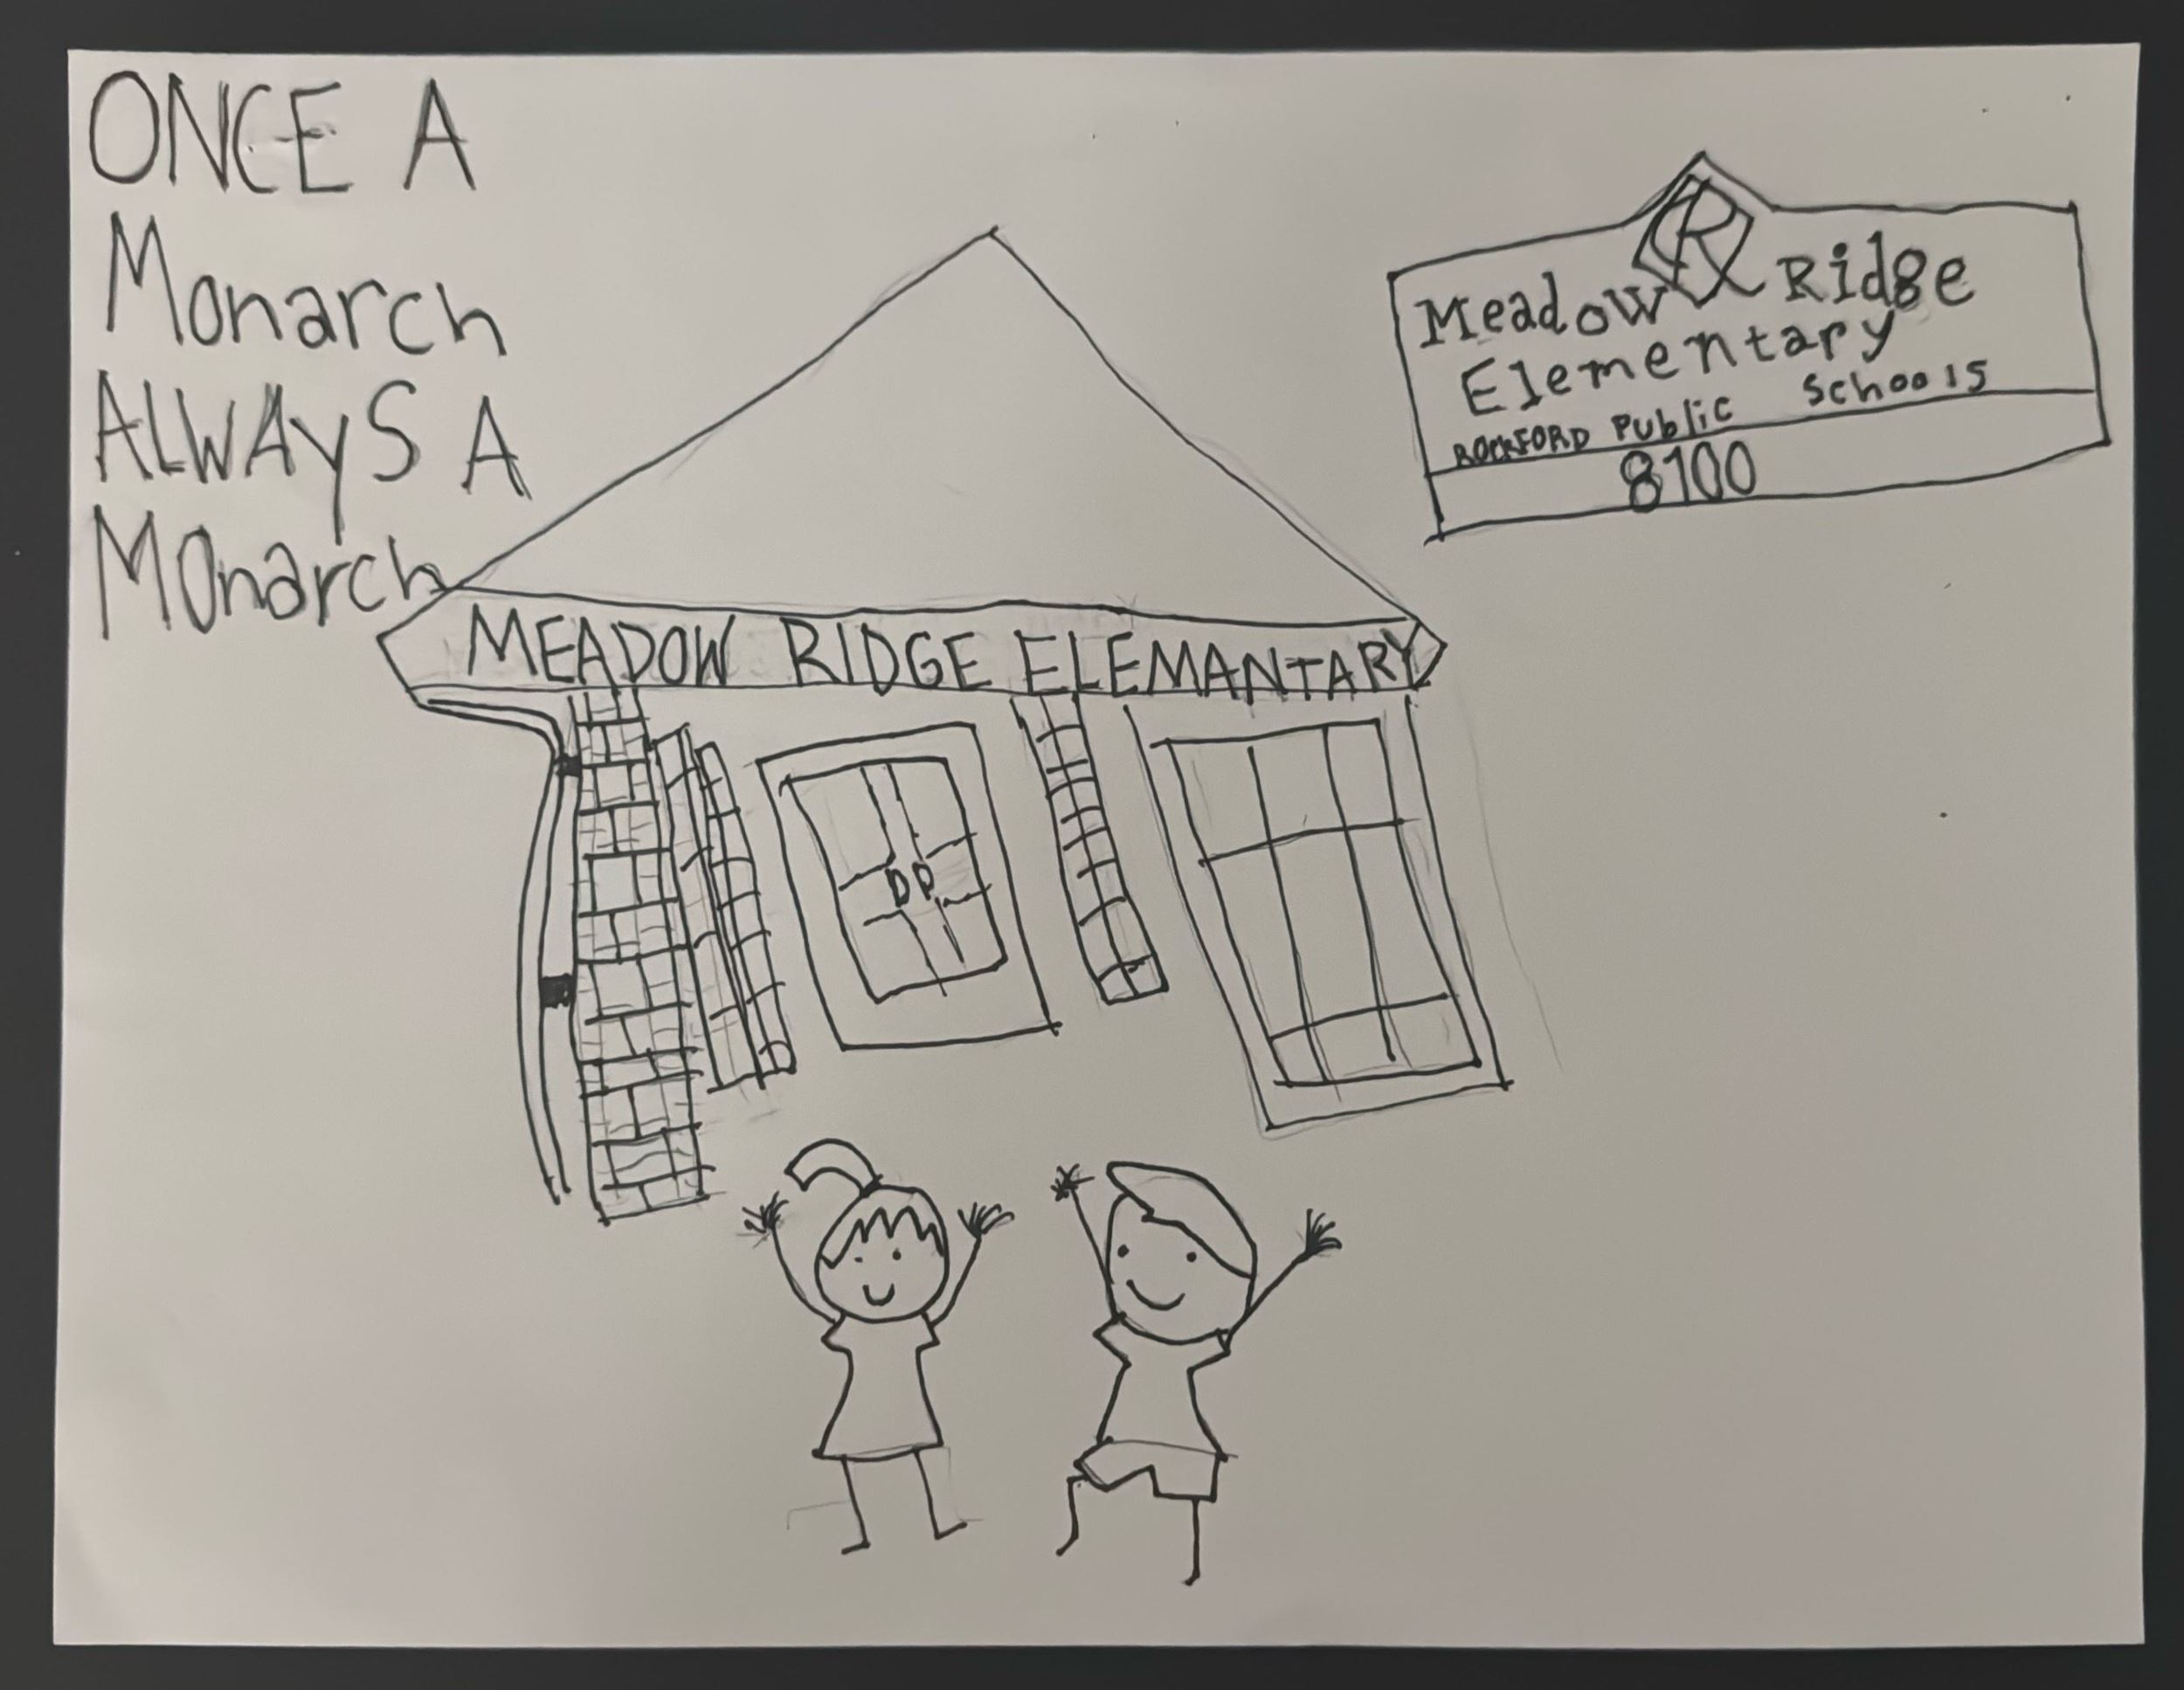 ONCE A
Monarch
ALWAYS A
Monarch
R
Meadow Ridge
Elementary
ROCKFORD Public Schools
8100
MEADOW RIDGE ELEMANTARY